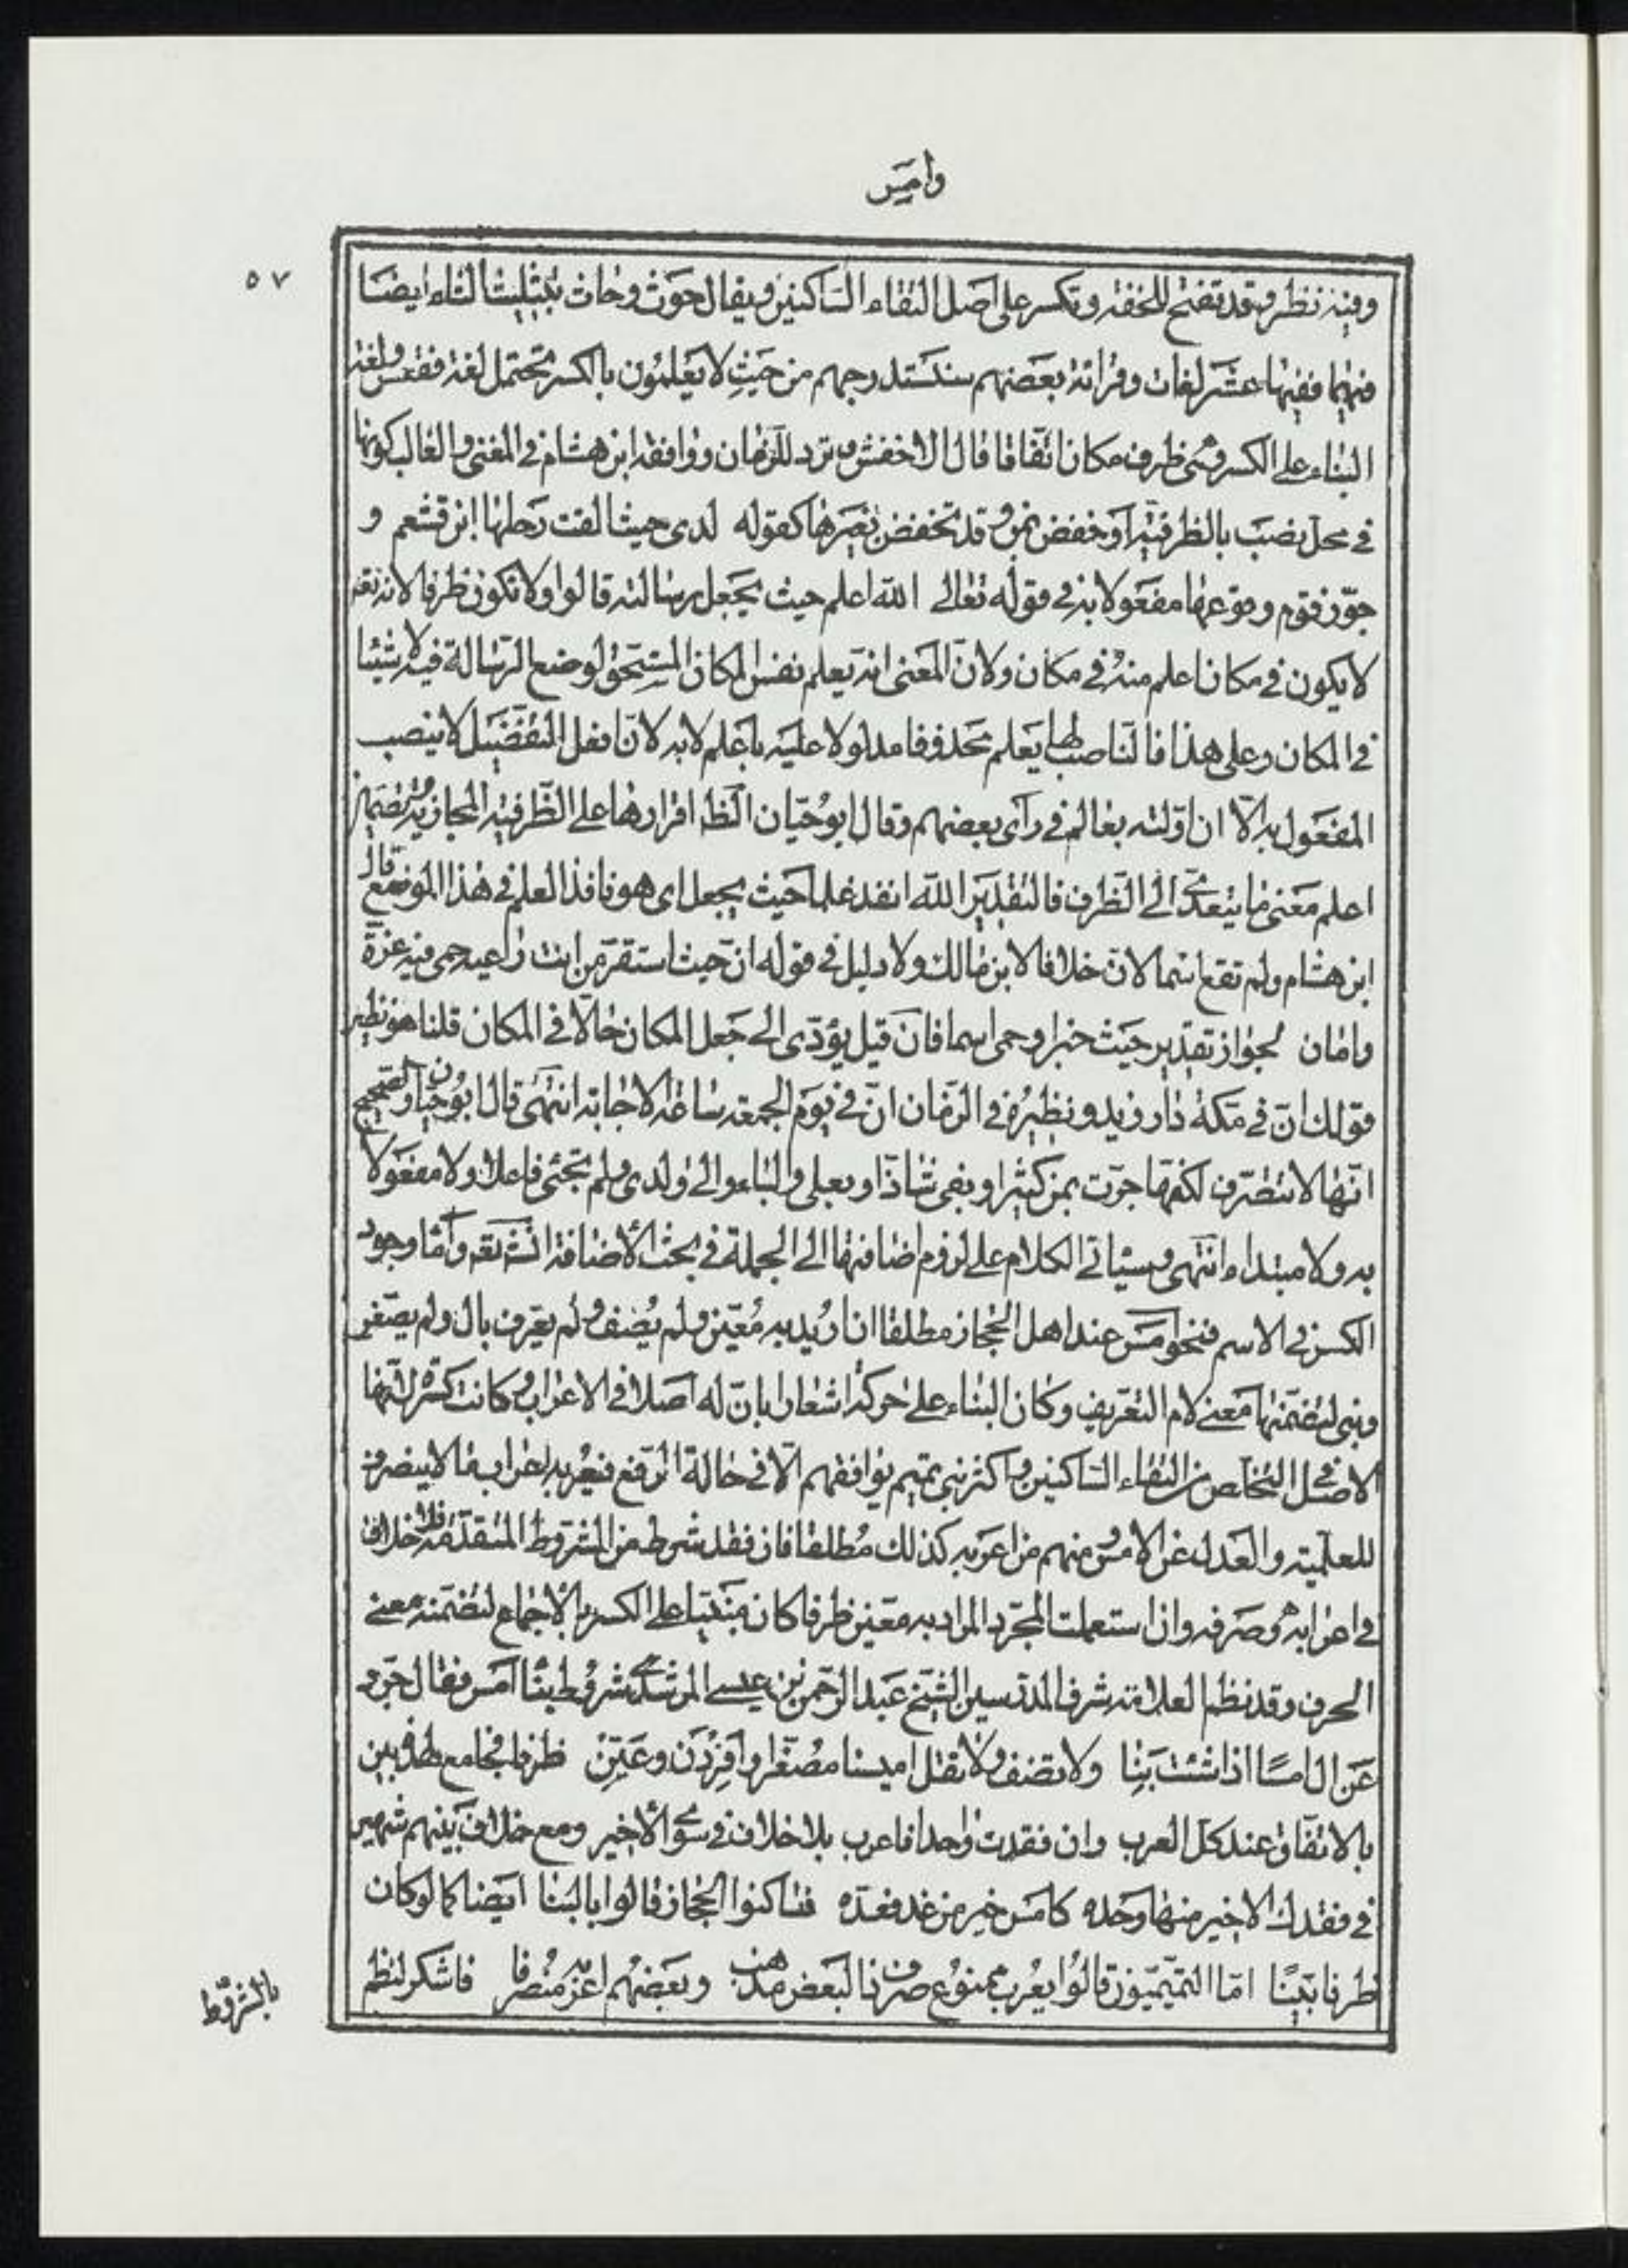 وامس
٥٧
وفيه نظر وقد تفتح للخفة وتكسر على اصل التقاء الساكنين ويقال حوث وحاث بتثليث الثاء ايضا
فيهما ففيها عشر لغات وقرائة بعضهم سنستدرجهم من حيث لا يعلمون بالكسر تحتمل لغة فقعس ولغة
البناء على الكسر وهي ظرف مكان اتفاقا قال الاخفش وترد للزمان ووافقه ابن هشام في المغنى والغالب كونها
في محل نصب بالظرفية او خفض بمن وقد تخفض بغيرها كقوله لدى حيث القت رحلها ام قشعم و
جوّز قوم وقوعها مفعولا به في قوله تعالى الله اعلم حيث يجعل رسالته قالوا ولا تكون ظرفا لانه تعه
لا يكون في مكان اعلم منه في مكان ولانّ المعنى انه يعلم نفس المكان المستحق لوضع الرسالة فيه لا شيئا
في المكان وعلى هذا فالناصب لها يعلم محذوفا مدلولا عليه باعلم لا به لانّ افعل التفضيل لا ينصب
المفعول به الّا ان اوّلته بعالم في رأى بعضهم وقال ابو حيّان الظه اقرارها على الظرفية المجازية وتضمين
اعلم معنى ما يتعدّى الى الظرف فالتقدير الله انفذ علما حيث يجعل اى هو نافذ العلم في هذا الموضع قال
ابن هشام ولم تقع اسما لانّ خلافا لابن مالك ولا دليل في قوله انّ حيث استقرّ من انت راعيه حمى فيه عزة
وامان لجواز تقدير حيث خبرا وحمى اسما فان قيل يؤدّى الى جعل المكان حالّا في المكان قلنا هو نظير
قولك انّ في مكة دار زيد ونظيره في الزمان انّ في يوم الجمعة ساعة الاجابة انتهى قال ابو حيان والصحيح
انّها لا تتصرّف لكنّها جرّت بمن كثيرا وبفى شاذّا وبعلى والباء والى ولدى ولم تجئ فاعلا ولا مفعولا
به ولا مبتداء انتهى وسيأتي الكلام على لزوم اضافتها الى الجملة في بحث الاضافة انشه تعه وامّا وجود
الكسر في الاسم فنحو امس عند اهل الحجاز مطلقا ان اريد به معيّن ولم يضف ولم يعرف بال ولم يصغر
وبنى لتضمّنها معنى لام التعريف وكان البناء على حركة اشعارا بانّ له اصلا في الاعراب وكانت كسرة لانها
الاصل في التخلص من التقاء الساكنين واكثر بنى تميم يوافقهم الّا في حالة الرفع فيعربه اعراب ما لا ينصرف
للعلمية والعدل عن الامس ومنهم من اعربه كذلك مطلقا فان فقد شرط من الشروط المتقدّمة فلا خلاف
في اعرابه وصرفه وان استعملت المجرّد المراد به معيّن ظرفا كان مبنيّا على الكسر بالاجماع لتضمّنه معنى
الحرف وقد نظم العلامة شرف المدرّسين الشيخ عبد الرحمن بن عيسى المرشدى شروط بناء امس فقال جرّد
عن ال امسًا اذا شئت بنا ولا تضف ولا تقل اميسا مصغرا وافردن وعيّن ظرفا فجامع لهذه بين
بالاتفاق عند كل العرب وان فقدت واحدا فاعرب بلا خلاف في سوى الاخير ومع خلاف بينهم شهير
في فقدك الاخير منها وحده كامس خير من غد فعدّه فساكنوا الحجاز قالوا بالبنا ايضا كما لو كان
ظرفا بيّنًا امّا التميميّون قالوا يعرب ممنوع صرف ذا لبعض مذهب وبعضهم اعربه منصرفا فاشكر لنظم
بالشروط